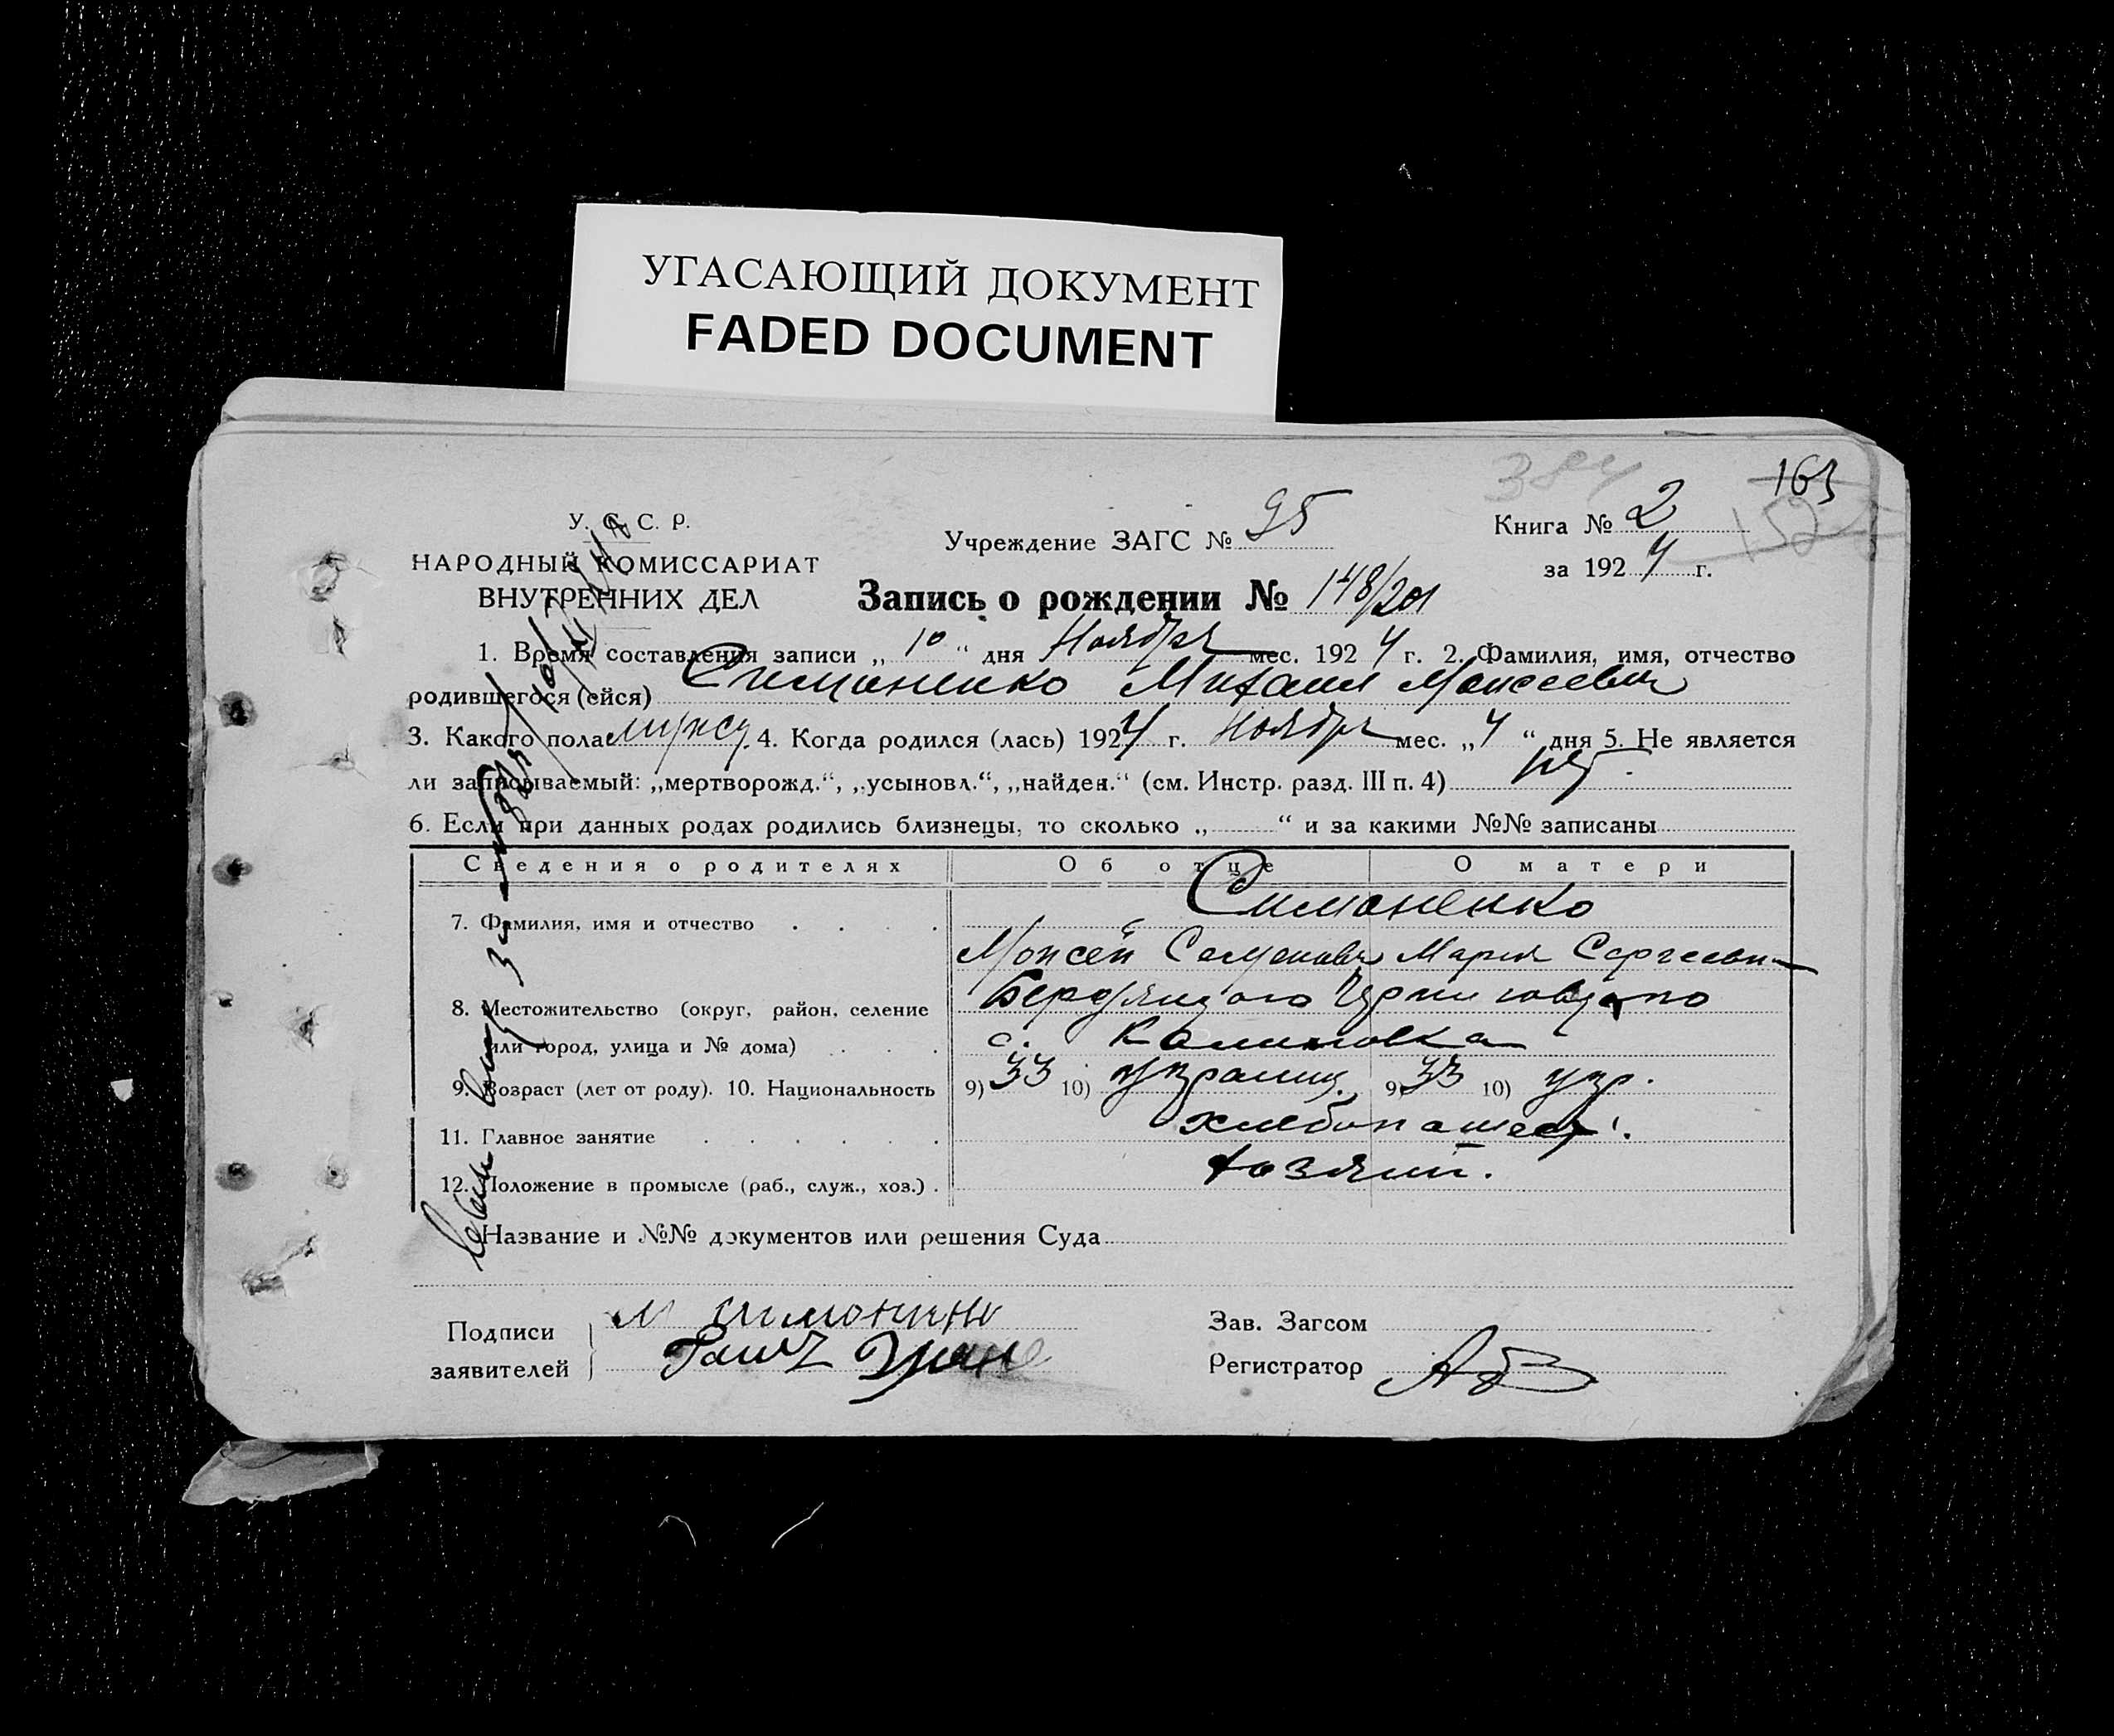 УГАСАЮЩИЙ ДОКУМЕНТ
FADED DOCUMENT
384
163
У. С. С. Р.
НАРОДНЫЙ КОМИССАРИАТ
ВНУТРЕННИХ ДЕЛ
Учреждение ЗАГС № 95
Книга № 2
152
за 1924 г.
Запись о рождении № 148/201
1. Время составления записи „ 10 “ дня Ноября мес. 1924 г. 2. Фамилия, имя, отчество
родившегося (ейся) Симоненко Михаил Моисеевич
3. Какого пола мужск 4. Когда родился (лась) 1924 г. Ноября мес. „ 4 “ дня 5. Не является
ли записываемый: „мертворожд.“, „усыновл.“, „найден.“ (см. Инстр. разд. III п. 4) нет.
6. Если при данных родах родились близнецы, то сколько „ “ и за какими №№ записаны
Сведения о родителях Об отце О матери
7. Фамилия, имя и отчество . . . . Симоненко
Моисей Семенович Мария Сергеевн
8. Местожительство (округ, район, селение
или город, улица и № дома) . . . с. Калиновка
9. Возраст (лет от роду). 10. Национальность 9) 33 10) украинц. 9) 33 10) укр.
11. Главное занятие . . . . . . хлебопашест.
12. Положение в промысле (раб., служ., хоз.) . хозяин.
Название и №№ документов или решения Суда
Подписи
заявителей
М Симоненко
Зав. Загсом
Регистратор